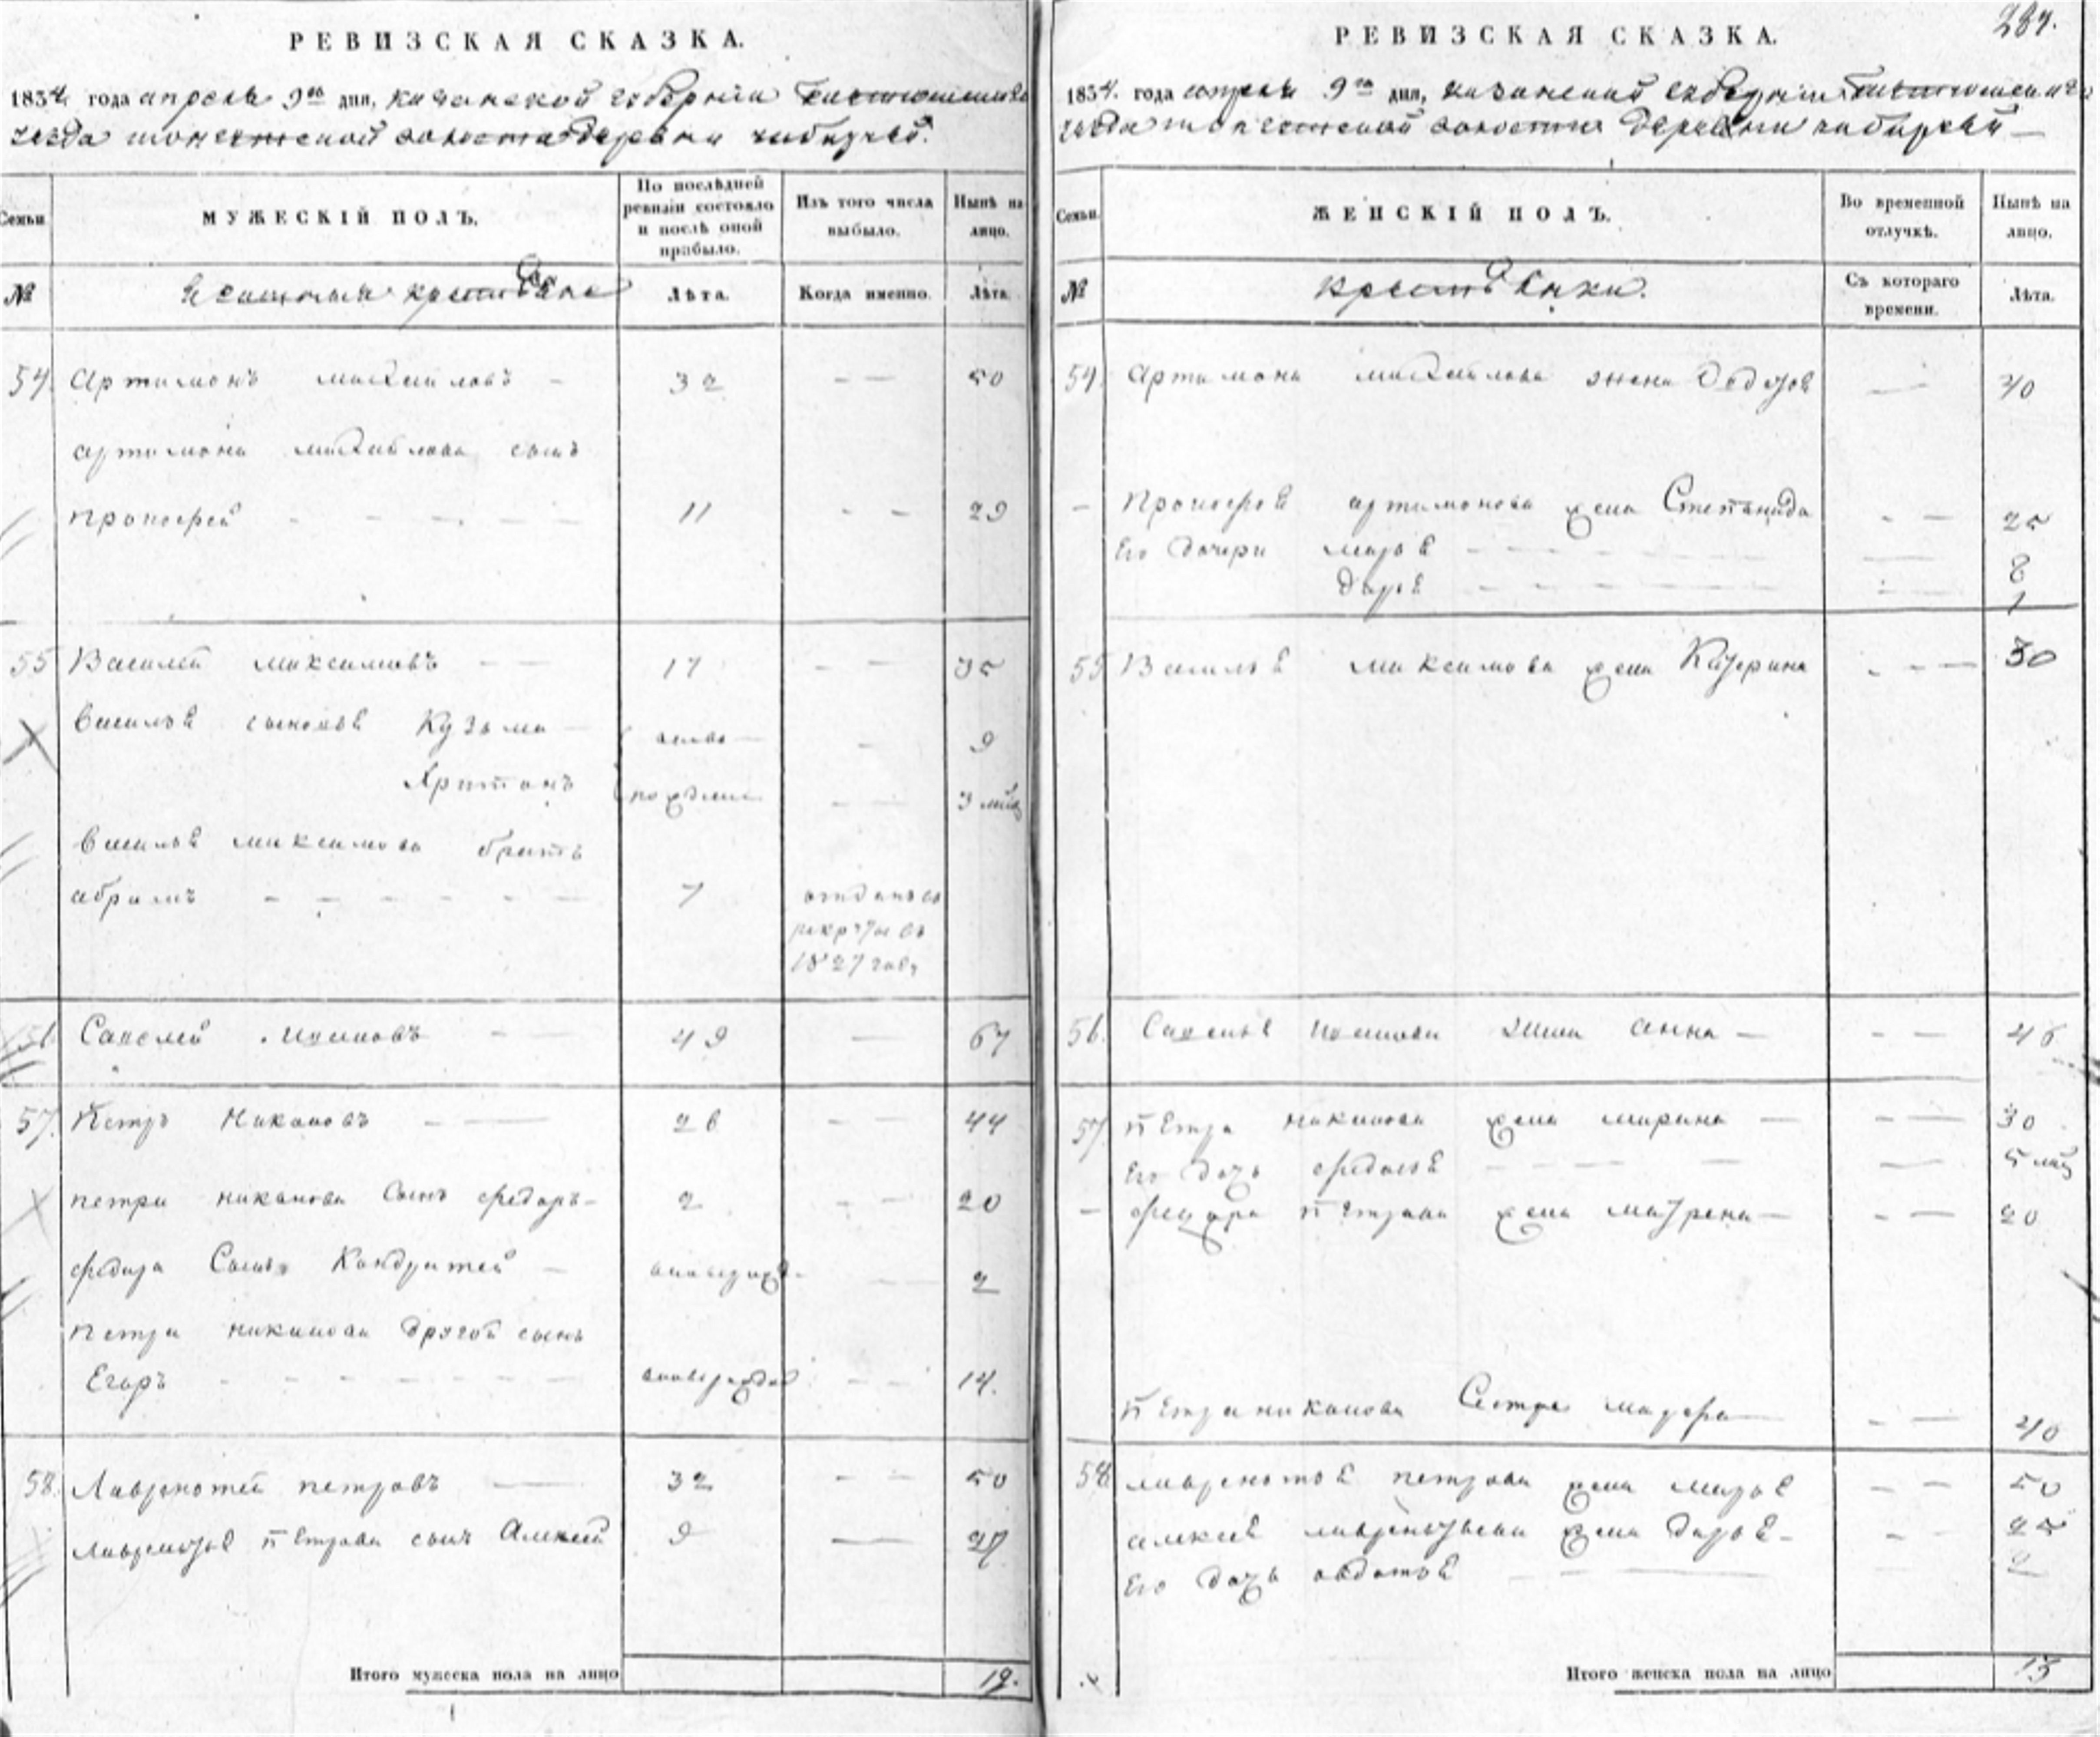 РЕВИЗСКАЯ СКАЗКА.
1834 года апреля 9го дня, казанской губернии
уезда волости деревни
Семьи
МУЖЕСКІЙ ПОЛЪ.
По послѣдней ревизіи состояло и послѣ оной прибыло.
Изъ того числа выбыло.
Нынѣ на лицо.
№
Ясашныя крестьяне
Лѣта.
Когда именно.
Лѣта
54. Артимонъ михаиловъ - 32 - - 50
артимона михаилова сынъ
прокофей - - - - - 11 - - 29
55 Василей максимовъ - - 17 - - 35
василья сыновья Кузьма - после - 9
Харитонъ ревизии - - 3
василья максимова братъ
абрамъ - - - - - - 7 отданъ въ
рекруты въ
1827 году
56 Савелей - - 49 — 67
57. Петръ никановъ - — 26 - - 44
петра никанова сынъ федоръ - 2 - - 20
федора сынъ Кондратей - - — 2
петра никанова другой сынъ
Егоръ - - - - - - - - 14.
58. Лаврентей петровъ — 32 - - 50
лаврентья петрова сынъ Алексей 9 — 27
Итого мужеска пола на лицо 12.
284.
РЕВИЗСКАЯ СКАЗКА.
1834. года апреля 9го дня, казанской губернии
уезда волости деревни
Семьи.
ЖЕНСКІЙ ПОЛЪ.
Во временной отлучкѣ.
Нынѣ на лицо.
№
крестьянки.
Съ котораго времени.
Лѣта.
54. Артимона михаилова жена — 40
- Прокофья артимонова жена Степанида - — 25
Его дочери марья - — - - — 8
дарья - - - — 1
55 Василья максимова жена Катерина - - — 30
56. Савелья жена анна — - — 46
57. петра никанова жена марина — - — 30
Его дочь федосья - — - — 5
- федора петрова жена матрена — - — 20
петра никанова Сестра - — 40
58 лаврентья петрова жена марья - — 50
алексея лаврентьева жена дарья - - 25
Его дочь авдотья - — 2
Итого женска пола на лицо 13